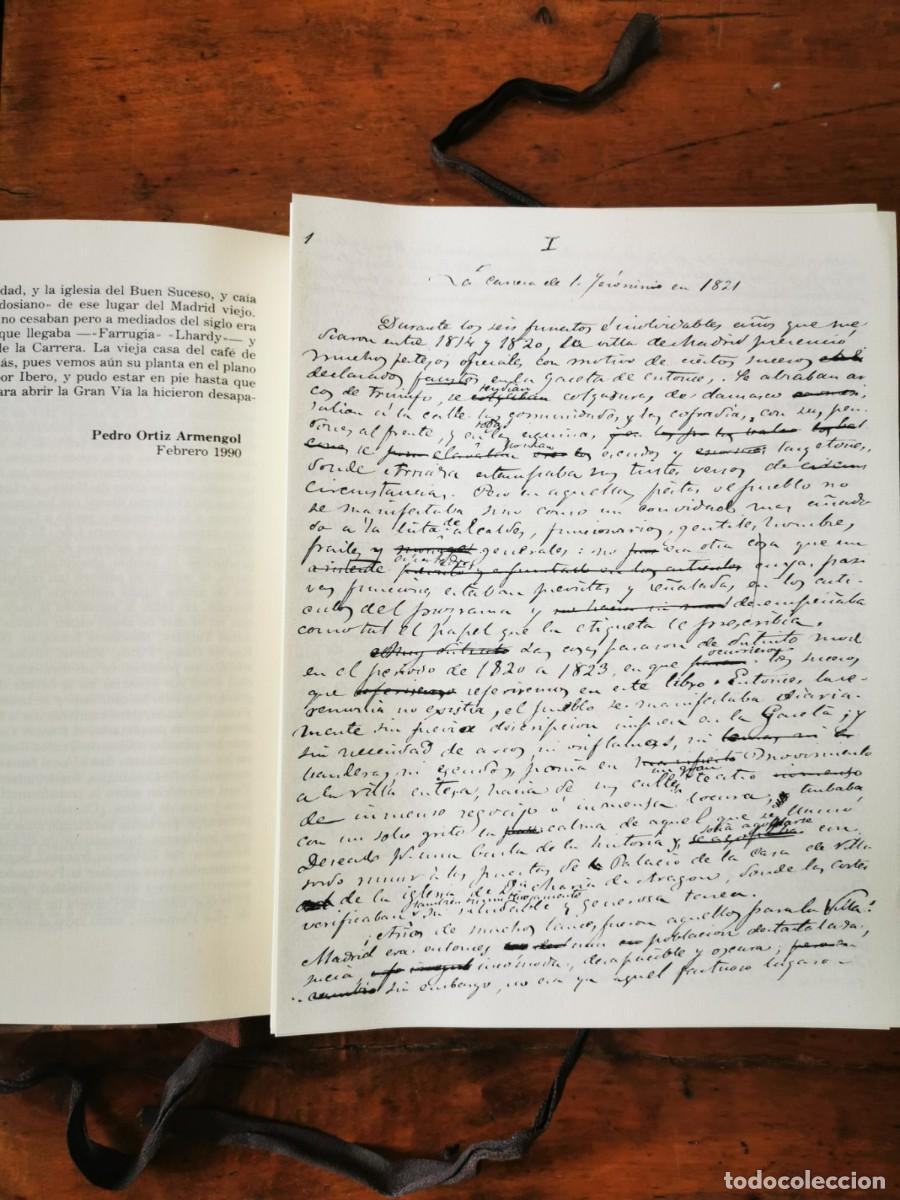 dad, y la iglesia del Buen Suceso, y caía
dosiano» de ese lugar del Madrid viejo.
no cesaban pero a mediados del siglo era
que llegaba —«Farrugia» «Lhardy»— y
de la Carrera. La vieja casa del café de
ás, pues vemos aún su planta en el plano
or Ibero, y pudo estar en pie hasta que
ara abrir la Gran Vía la hicieron desapa-
Pedro Ortiz Armengol
Febrero 1990
1
I
La carrera de S. Jerónimo en 1821
Durante los seis funestos é inolvidables años que me-
diaron entre 1814 y 1820, la villa de Madrid presenció
muchos festejos oficiales con motivo de ciertos sucesos
declarados faustos en la Gaceta de entonces. Se alzaban ar
cos de triunfo, se tendían colgaduras de damasco
salian á la calle las comunidades y las cofradias con sus pen
dones al frente, y en las esquinas
se ponian escudos y targetones,
donde Arriaza estampaba sus tristes versos de
circunstancias. Pero en aquellas fiestas el pueblo no
se manifestaba sino como un convidado mas añadi
do a la lista de alcaldes, funcionarios, gentiles hombres,
frailes y generales: no era otra cosa que un
cuyas pasi
vas funciones estaban previstas y señaladas en los arti-
culos del programa y desempeñaba
como tal el papel que la etiqueta le prescribia.
Las cosas pasaron de distinto mod
en el periodo de 1820 a 1823, en que ocurrieron los sucesos
que referiremos en este libro. Entonces la ce-
remonia no existia, el pueblo se manifestaba diaria-
mente sin previa descripcion impresa en la Gaceta; y
sin necesidad de arcos, ni oriflamas, ni
banderas, ni escudos, ponia en movimiento
á la villa entera, hacia de sus calles un gran teatro
de inmenso regocijo ó inmensa locura; turbaba
con un solo grito la calma de aquel que se llamó
Deseado por una burla de la historia y solia agolparse con
sordo rumor á las puertas de Palacio de la casa de Villa
de la iglesia de Doña Maria de Aragon, donde las cortes
verificaban su saludable y generosa tarea.
¡Años de muchos lances fueron aquellos para la Villa!
Madrid era entonces una poblacion destartalada,
sucia, incómoda, desapacible y oscura;
sin embargo, no era ya aquel fastuoso lugaro-
todocoleccion